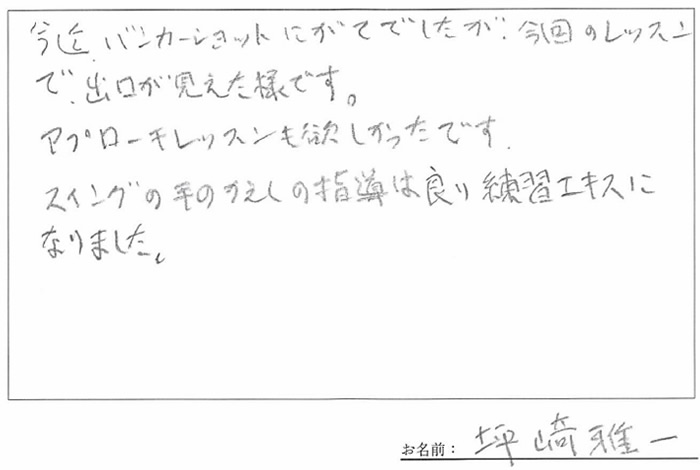 今迄、バンカーショットにがてでしたが、今回のレッスン
で、出口が見えた様です。
アプローチレッスンも欲しかったです.
スイングの手のかえしの指導は良り練習エキスに
なりました。
お名前： 坪崎雅一